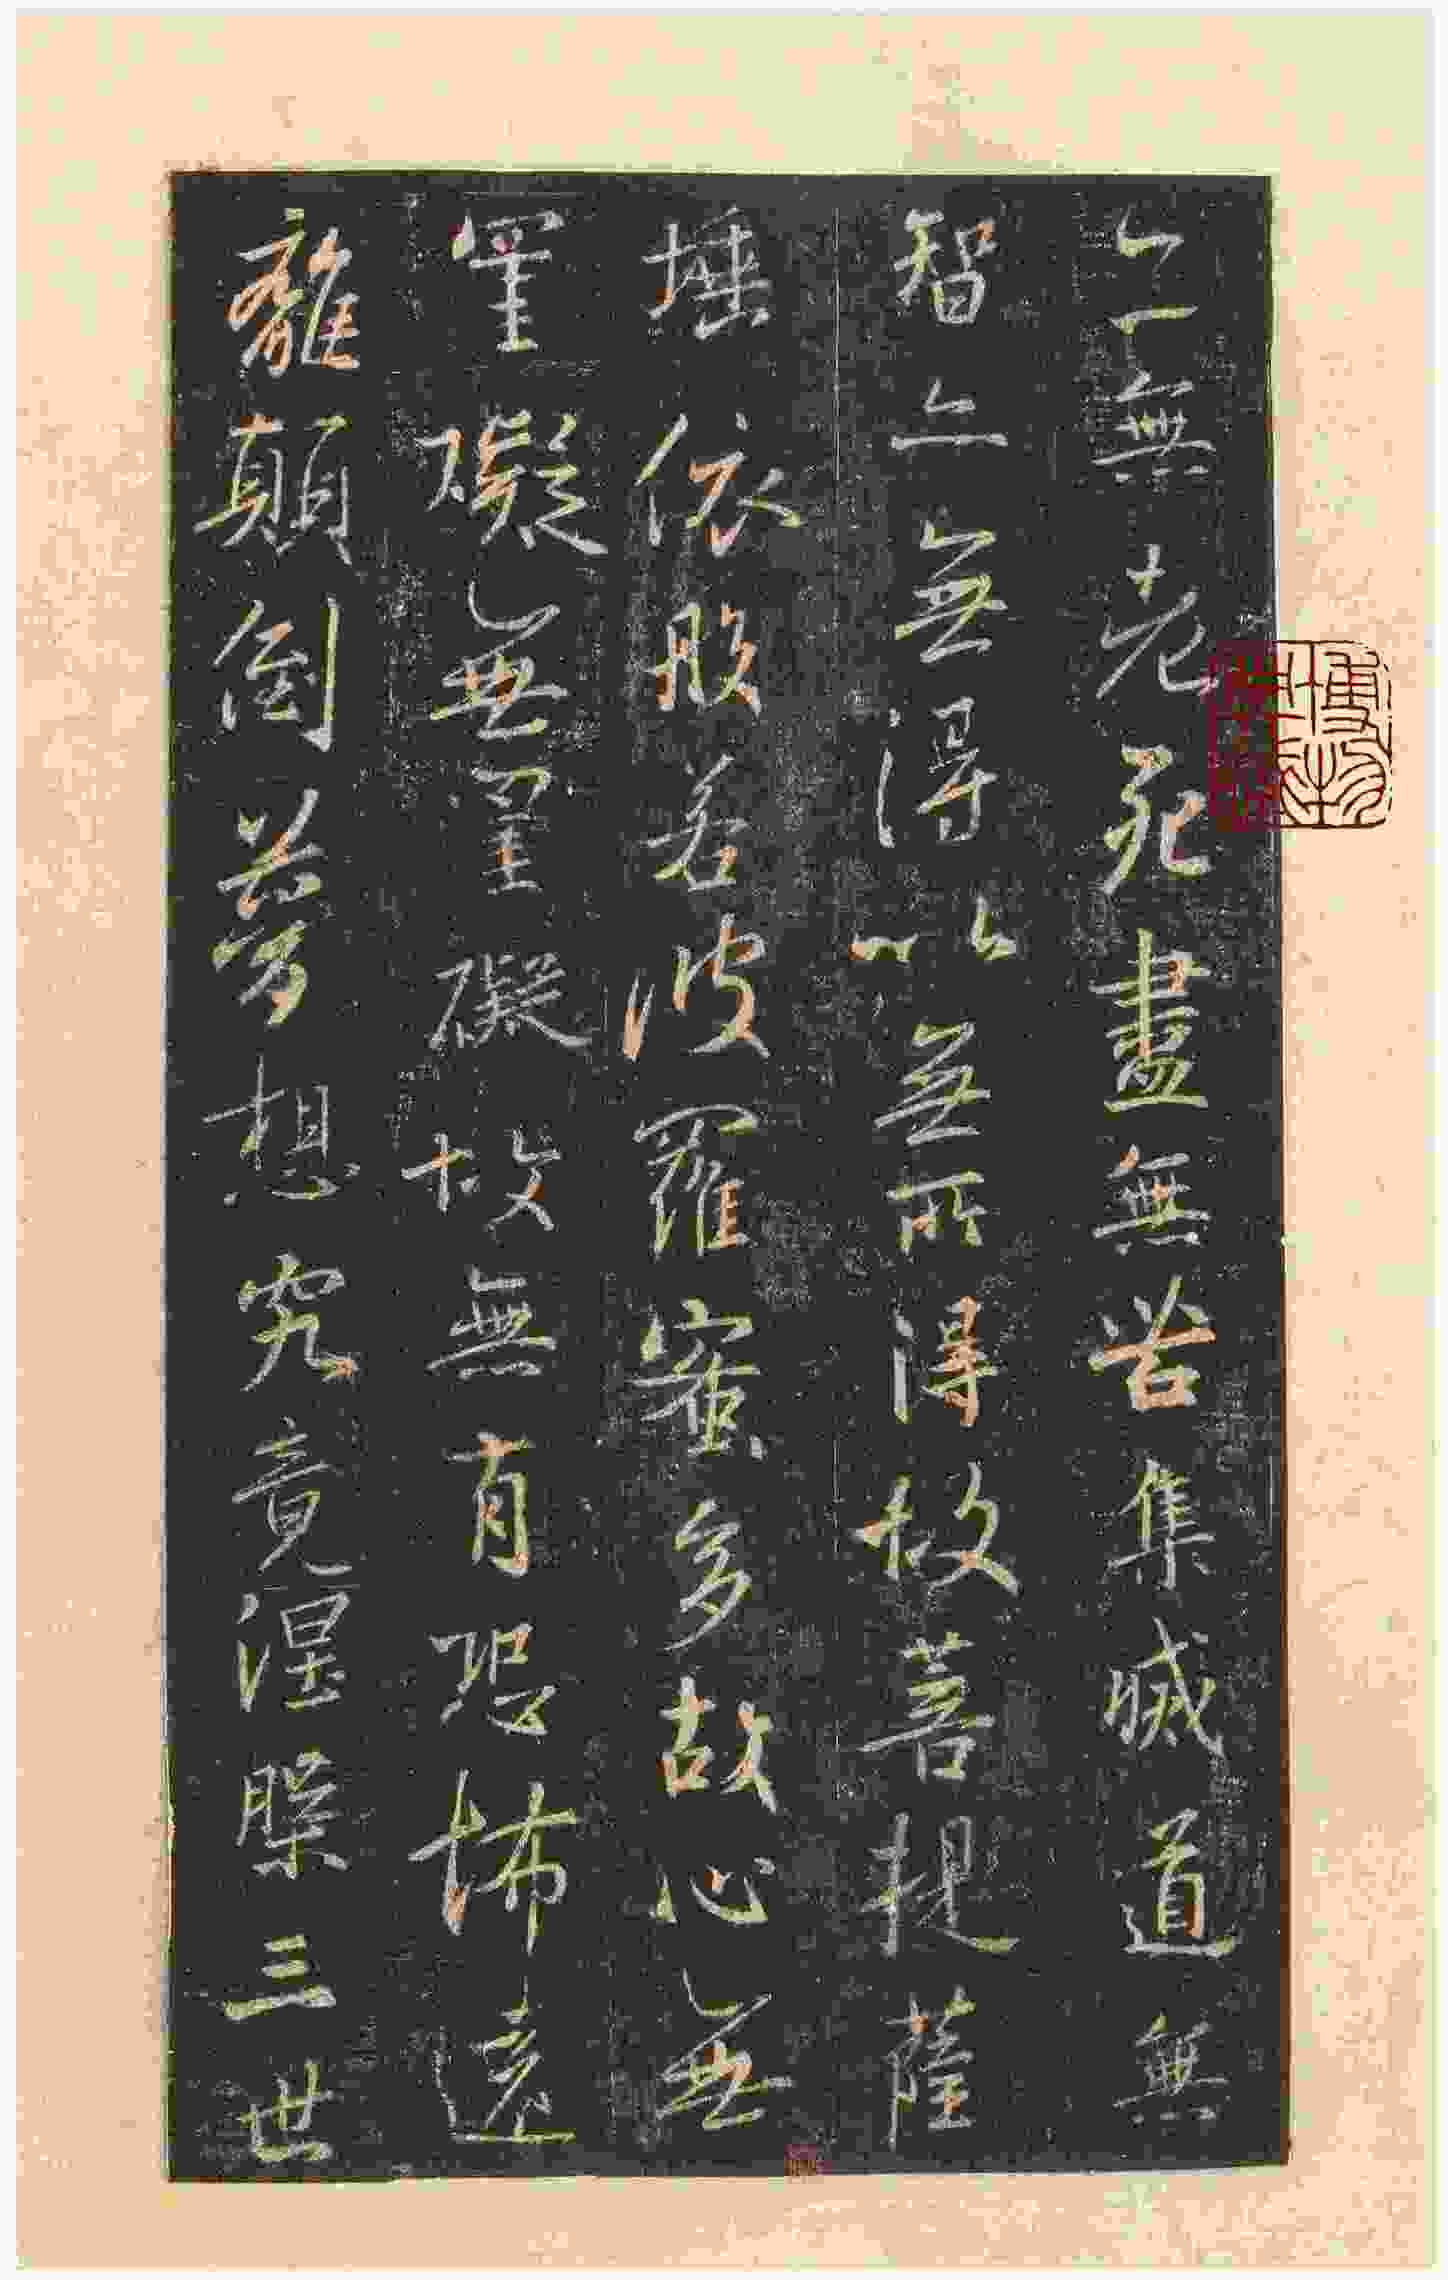 亦無老死盡無苦集滅道無
智亦無得以無所得故菩提薩
埵依般若波羅蜜多故心無
罣礙無罣礙故無有恐怖遠
離顛倒夢想究竟涅槃三世